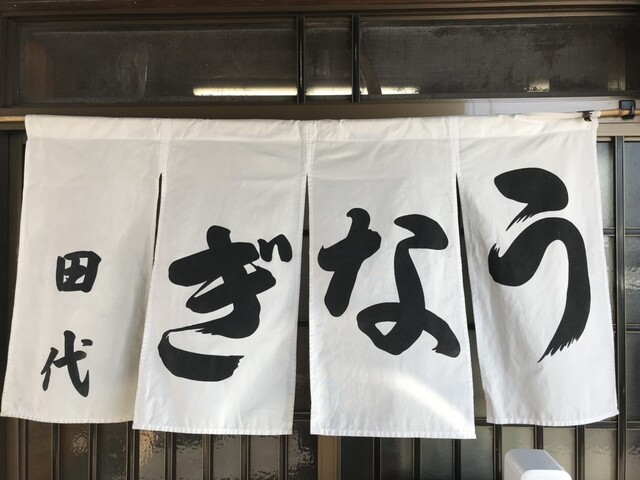 うなぎ
田代